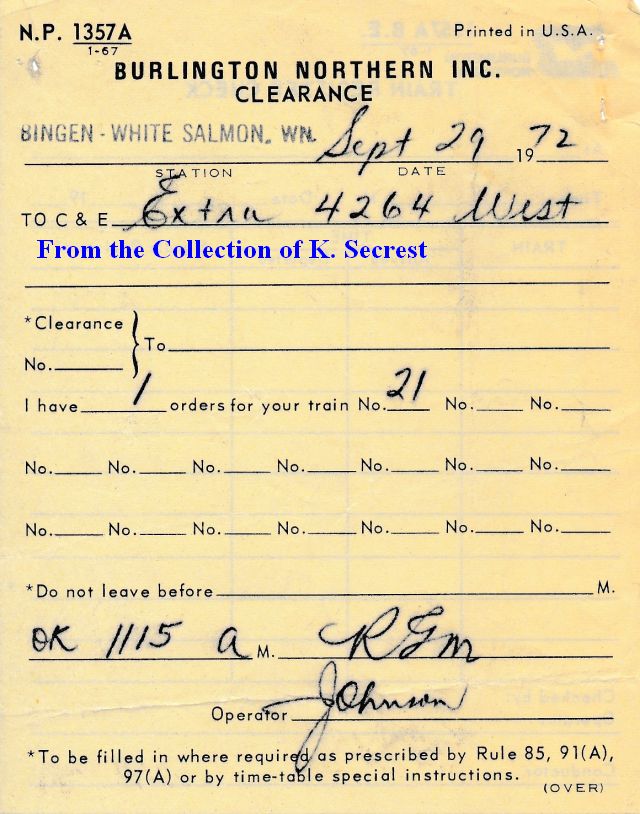 N.P. 1357A Printed in U.S.A.
1-67
BURLINGTON NORTHERN INC.
CLEARANCE
BINGEN - WHITE SALMON, WN. Sept 29 1972
STATION DATE
TO C & E Extra 4264 West
From the Collection of K. Secrest
*Clearance
No. To
I have 1 orders for your train No. 21 No. No.
No. No. No. No. No. No. No.
No. No. No. No. No. No. No.
*Do not leave before M.
OK 1115 a M. RGM
Operator Johnson
*To be filled in where required as prescribed by Rule 85, 91(A),
97(A) or by time-table special instructions.
(OVER)